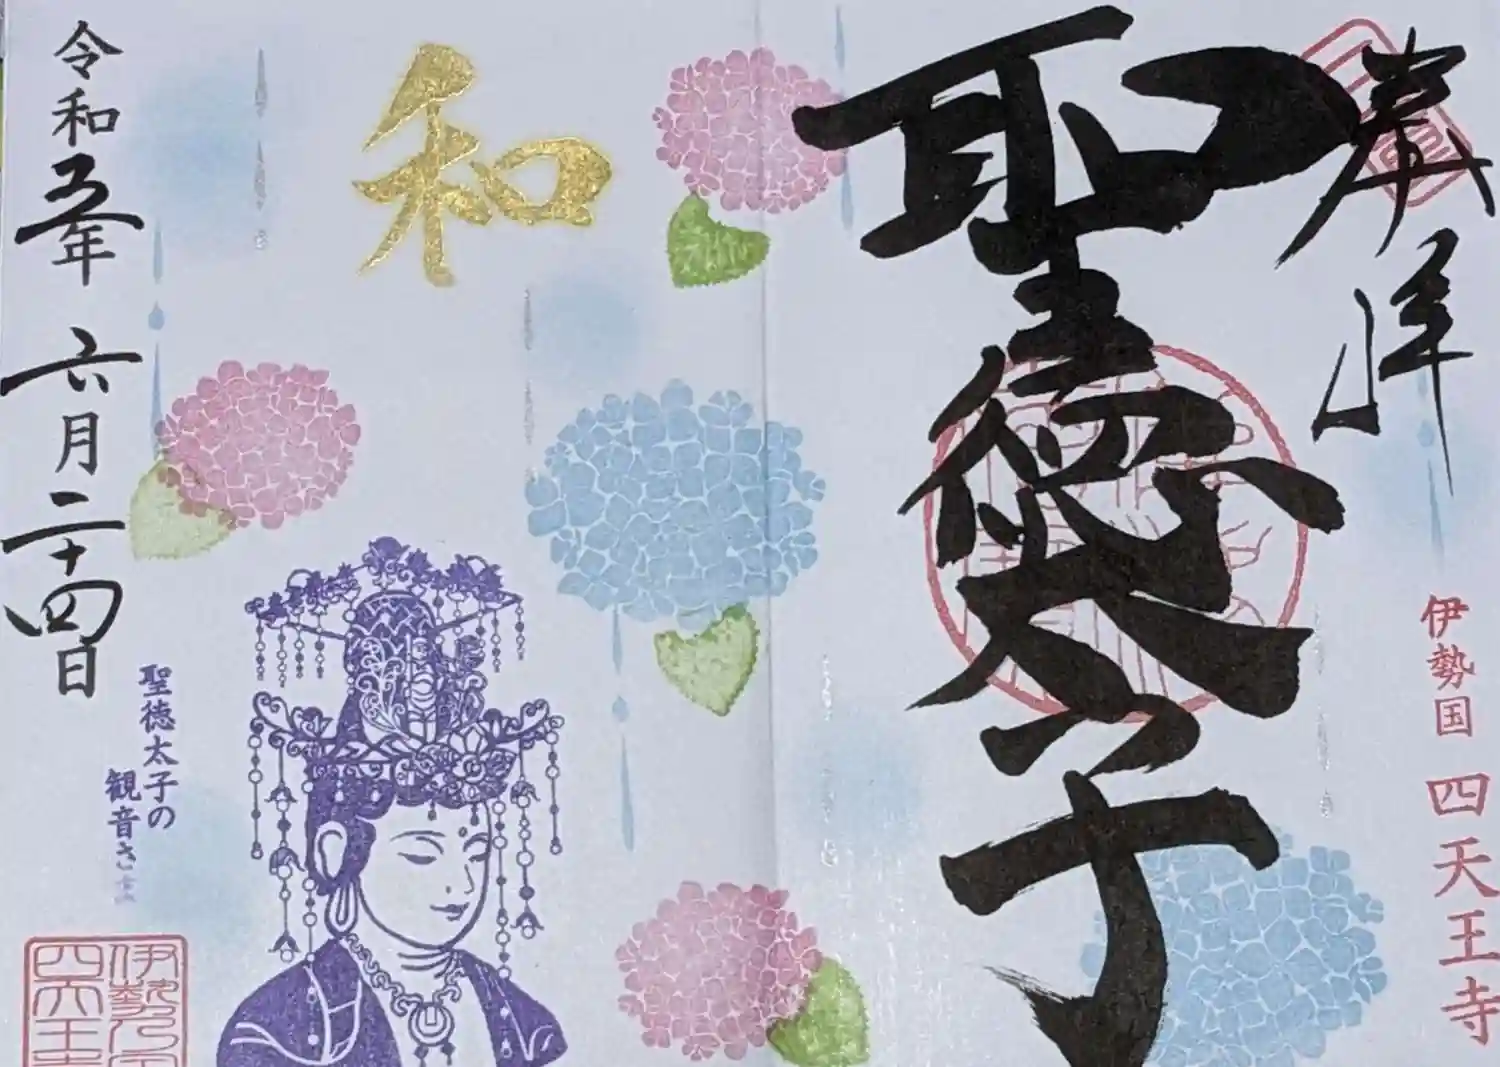 奉拝
聖徳太子
伊勢国 四天王寺
和
聖徳太子の
観音さま
令和五年 六月二十四日